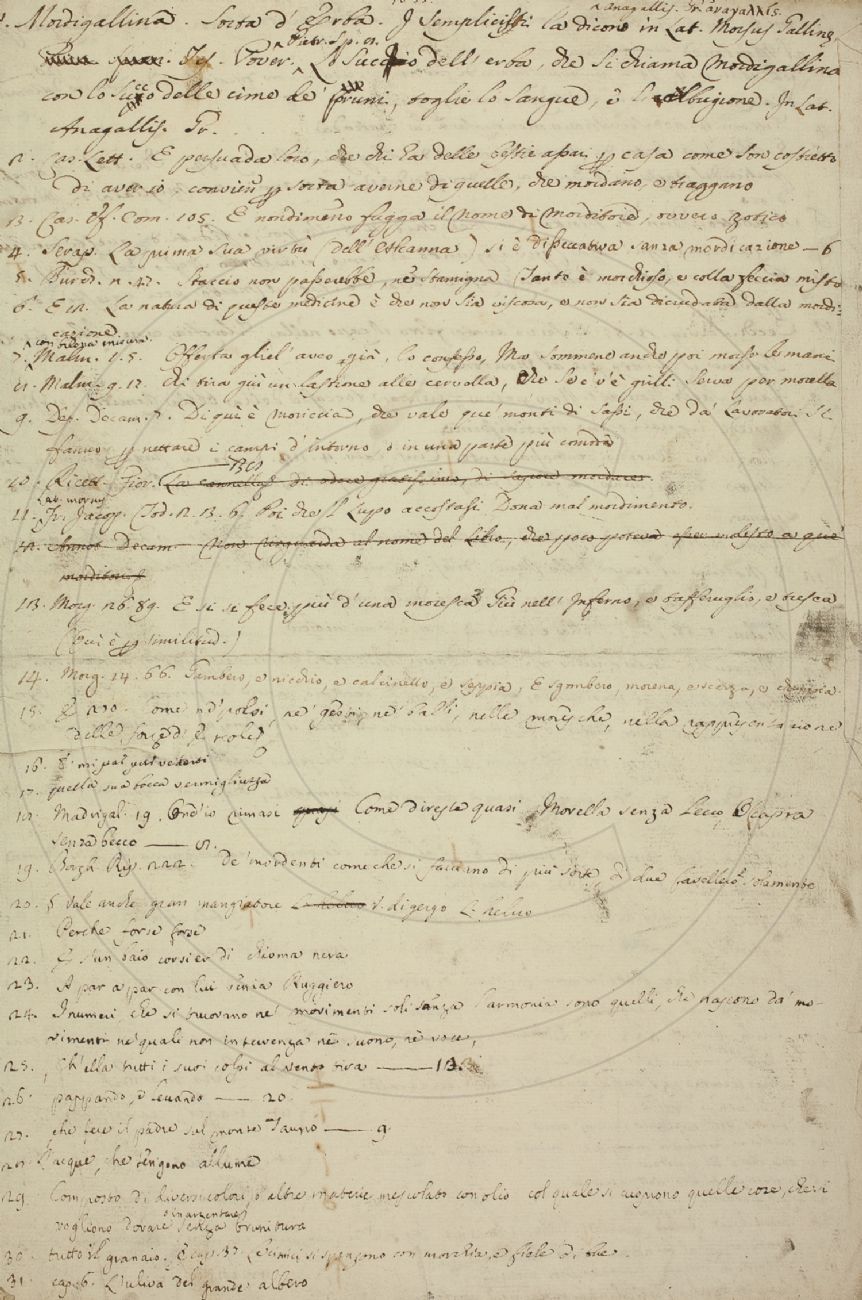 anagallis. Gr. ἀναγαλλίς.
1. Mordigallina. Sorta d'Erba. I Semplicisti la dicono in Lat. Morsus Gallinę
Tes. Pover. P. Sp. Il Succhio dell'erba, che si chiama Mordigallina
con lo succo delle cime de' pruni, toglie lo Sangue, e albugione. In Lat.
Anagallis. Gr.
2. Car. Lett. E persuada loro, che chi ha delle bestie assai per casa come son costretto
di aver io, convien per sorta averne di quelle, che mordano, e traggano
13. Car. Com. 105. E nondimeno fugga il nome di Morditore, ovvero Zotico
4. Serap. La prima sua virtù (dell'Alcanna) si è dissiccativa sanza mordicazione — 6
5. Burch. n. 42. Staccio non passerebbe, nè Stamigna Tanto è mordioso, e colla feccia misto
6. E 12. La natura di queste medicine è che non sia viscosa, e non sia dinudata dalla mordi:
cazione
con buona misura
7. Malm. 9. 5. Offerta gliel' aveo già, lo confesso, Ma sommene anche poi morso le mani
11. Malm. 9. 12. Chi tira giù un lastrone alle cervella, Che se v'è grilli serve per morella
9. Dep. Decam. Di qui è Moriccia, che vale que' monti di sassi, che da' Lavoratori si
fanno per nettare i campi d'intorno, o in una parte più comoda
10. Ricett. Fior. La cannella di odore gratissimo, di sapore mordace.
Lat. morsus
11. Fr. Jacop. Tod. 2. 13. 6. Poi che 'l Lupo accostasi Dona mal mordimento.
12. Annot. Decam. Non riguarda al nome del Libro, che poco poteva esser molesto a que'
morditori
13. Morg. 26. 89. E si si fece più d'una moresca Giù nell'Inferno, e tafferuglio, e tresca
(Qui è per similitud.)
14. Morg. 14. 66. Gambero, e nicchio, e calcinello, e seppia, E sgombero, morena, e scorza, e cheppia.
15. E 270. Come ne' polsi, ne' gesti, ne' balli, nelle moresche, nella rappresentazione
delle forze d'Ercole
16. E mi par pur vedersi
17. quella sua bocca vermigliuzza
18. Madrigal. 19. Ond'io rimasi quasi Come direste quasi Morella senza Lecco, O Capra
senza becco — 2.
19. Borgh. Rip. 222. De' mordenti come che si faccino di più sorte, di due favellerò solamente
20. § Vale anche gran mangiatore V. di gergo L. helluo
21. Perche forse forse
22. E s'un baio corsier di chioma nera
23. A par a par con lui venia Ruggiero
24. I numeri, che si truovano ne' movimenti soli sanza l'armonia sono quelli, che nascono da' mo-
vimenti ne' quali non intervenga nè suono, nè voce,
25. Ch'ella tutti i suoi colpi al vento tira — 13
26. pappando, e levando — 20.
27. che fece il padre sul monte Tauro — 9
28. acque, che tengono allume
29. Composto di diversi colori, o altre materie mescolate con olio col quale si cuoprono quelle cose, che si
o inargentare
vogliono dorare senza brunitura
30. tutto il granaio. E cap. 37. Le cimici si spengono con morchia, e fiele di bue.
31. cap. 6. L'uliva del grande albero